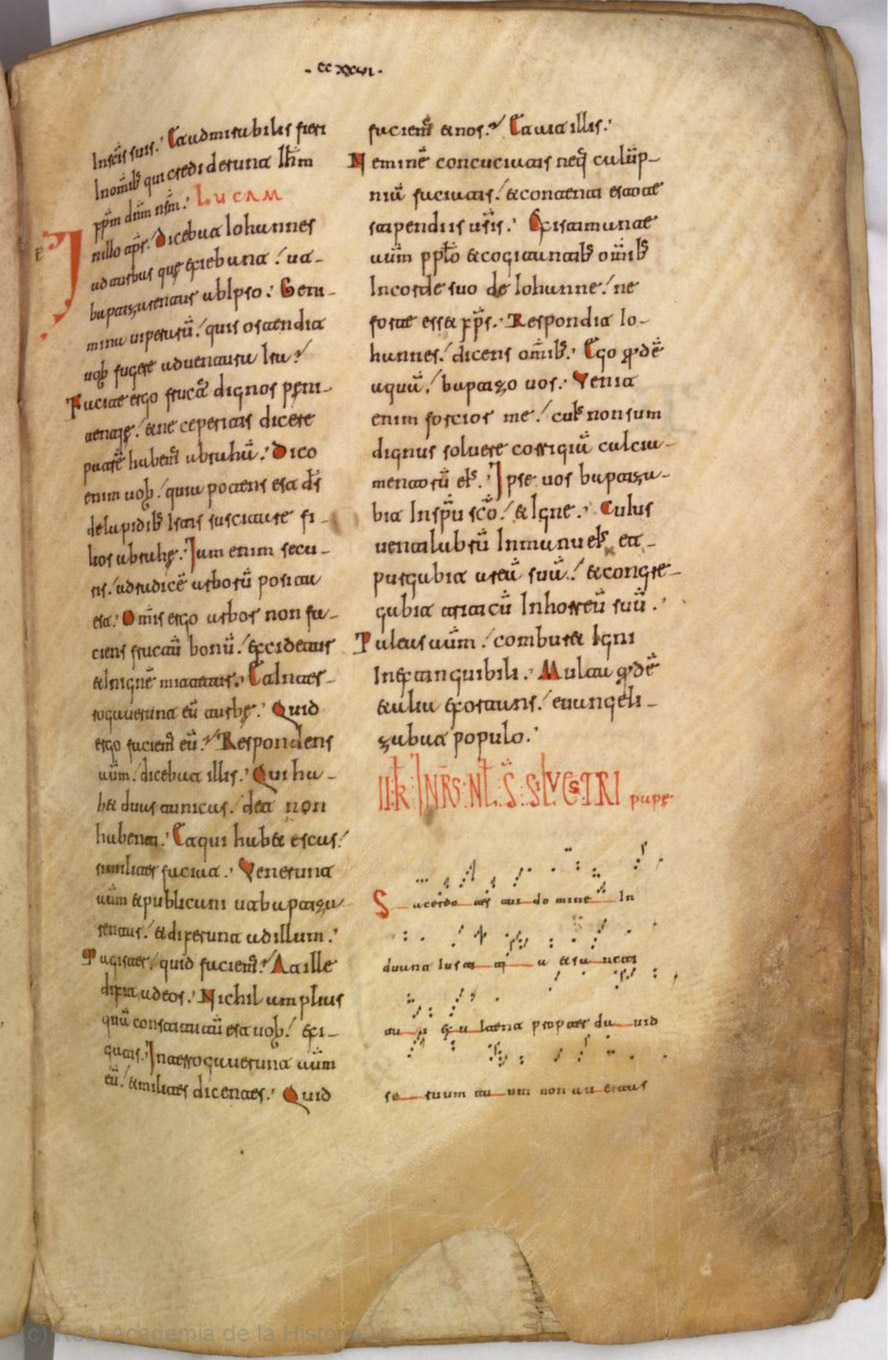 . ccxxvi .
In scīs suis. Et admirabilis fieri
In omīb; qui crediderunt Ihm
xpm dnm nsm. LUCAM
In illo tps. Dicebat Iohannes
ad turbas que exiebunt ut
baptizarentur ab Ipso. Geni-
mina uiperarū quis ostendit
uob fugere ad uentura Ira
Facite ergo fructū dignos peni-
tentie et ne ceperitis dicere
patrē habem̄ abraham. Dico
enim uob quia potens est ds̄
de lapidib; Istis suscitare fi-
lios abrahe. Iam enim secu-
ris ad radicē arborū posita
est. Omīs ergo arbor non fa-
ciens fructū bonū excidetur
et In ignē mittetur. Et Inter-
rogauerunt eū turbe. Quid
ergo faciem̄ eū. Respondens
aūm dicebat illis. Qui ha-
bet duas tunicas det non
habenti. Et qui habet escas
similiter faciat. Venerunt
aūm et publicani ut baptiza-
rentur et dixerunt ad illum.
Magister quid faciem̄. At ille
dixit ad eos. Nichil amplius
quā constitutū est uob exi-
gatis. Interrogauerunt aūm
eū et milites dicentes. Quid
faciem̄ et nos. Et ait illis.
Neminē concutiatis neq; calūp-
niā faciatis et contenti estote
stipendiis ur̄is. Existimante
aūm pplo et cogitantib; omīb;
In corde suo de Iohanne ne
forte esset xps. Respondit Io-
hannes dicens omīb;. Ego qdē
aqua baptizo uos. Veniet
enim fortior me cuīs non sum
dignus soluere corrigiā calcia-
mentorū eīs. Ipse uos baptiza-
bit In spū scō et Igne. Cuius
uentilabrū In manu eīs et
purgabit areā suā et congre-
gabit triticū In horreū suū.
Paleas aūm comburet Igni
Inextinguibili. Multa qdē
et alia exortans euangeli-
zabat populo.
II k̄l InRS: NL. S̄. SILVESTRI pape
Sacerdotes tui domine In
duunt Iustitia et sancti
tui exultent propter dauid
seruum tuum non auertas